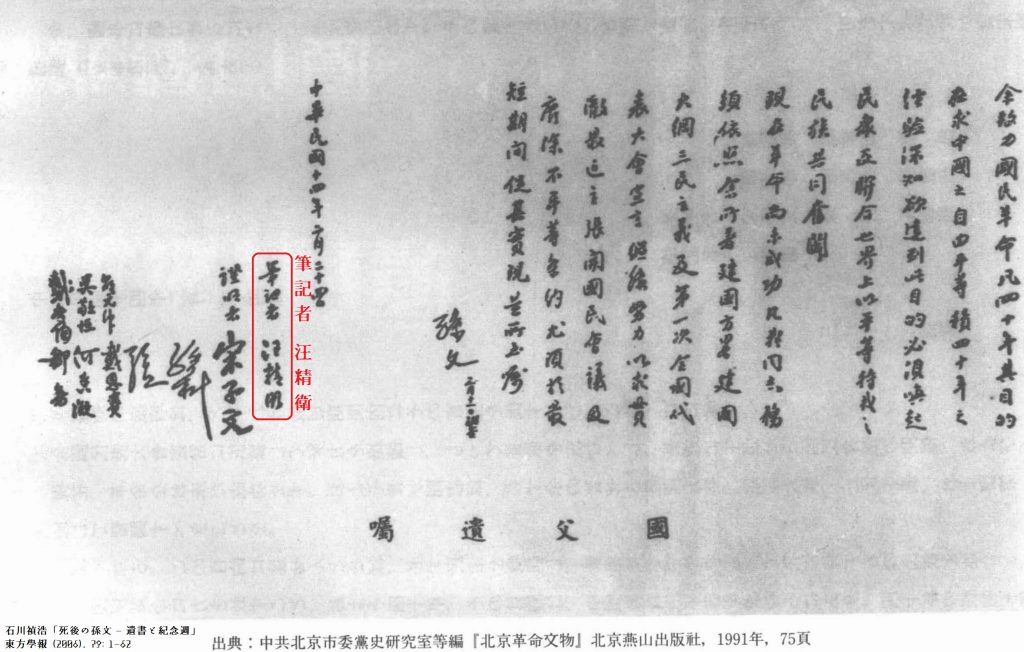 余致力國民革命凡四十年其目的
在求中國之自由平等積四十年之
經驗深知欲達到此目的必須喚起
民眾及聯合世界上以平等待我之
民族共同奮鬭
現在革命尚未成功凡我同志務
須依照余所著建國方畧建國
大綱三民主義及第一次全國代
表大會宣言繼續努力以求貫
澈最近主張開國民會議及
廢除不平等條約尤須於最
短期間促其實現是所至囑
孫文
中華民國十四年二月二十四日
筆記者 汪精衛
筆記者 汪精衛
證明者 宋子文
孫科
戴恩賽
吳敬恆 何香凝
國父遺囑
石川禎浩「死後の孫文 - 遺書と紀念週」
東方學報 (2006), 79: 1-62
出典：中共北京市委黨史研究室等編『北京革命文物』北京燕山出版社，1991年，75頁